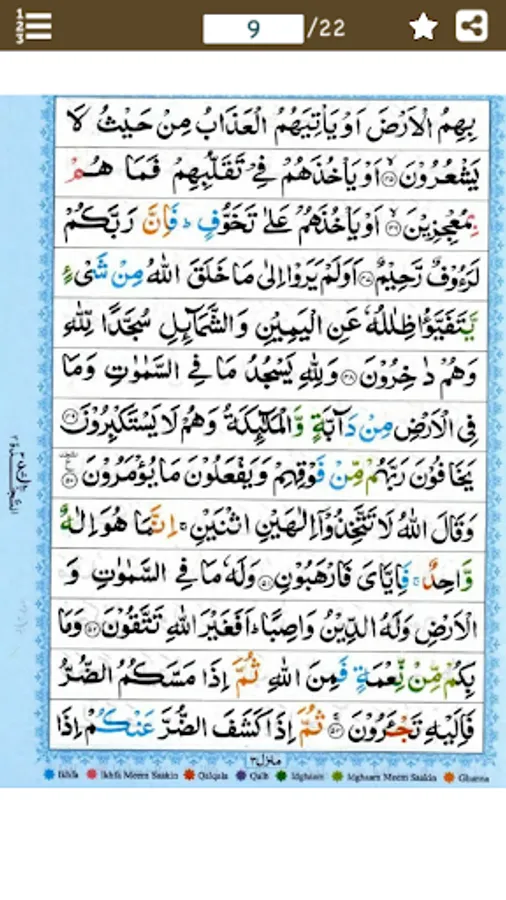 9 /22
بِهِمُ الْاَرْضَ اَوْ يَاْتِيَهُمُ الْعَذَابُ مِنْ حَيْثُ لَا
يَشْعُرُوْنَ ﴿۴۵﴾ اَوْ يَاْخُذَهُمْ فِيْ تَقَلُّبِهِمْ فَمَا هُمْ
بِمُعْجِزِيْنَ ﴿۴۶﴾ اَوْ يَاْخُذَهُمْ عَلٰى تَخَوُّفٍ ؕ فَاِنَّ رَبَّكُمْ
لَرَءُوْفٌ رَّحِيْمٌ ﴿۴۷﴾ اَوَلَمْ يَرَوْا اِلٰى مَا خَلَقَ اللّٰهُ مِنْ شَيْءٍ
يَّتَفَيَّؤُا ظِلٰلُهٗ عَنِ الْيَمِيْنِ وَالشَّمَآئِلِ سُجَّدًا لِّلّٰهِ
وَهُمْ دٰخِرُوْنَ ﴿۴۸﴾ وَلِلّٰهِ يَسْجُدُ مَا فِي السَّمٰوٰتِ وَمَا
فِي الْاَرْضِ مِنْ دَآبَّةٍ وَّالْمَلٰٓئِكَةُ وَهُمْ لَا يَسْتَكْبِرُوْنَ ﴿۴۹﴾
يَخَافُوْنَ رَبَّهُمْ مِّنْ فَوْقِهِمْ وَيَفْعَلُوْنَ مَا يُؤْمَرُوْنَ ﴿۵۰﴾
وَقَالَ اللّٰهُ لَا تَتَّخِذُوْٓا اِلٰهَيْنِ اثْنَيْنِ ۚ اِنَّمَا هُوَ اِلٰهٌ
وَّاحِدٌ ۚ فَاِيَّايَ فَارْهَبُوْنِ ﴿۵۱﴾ وَلَهٗ مَا فِي السَّمٰوٰتِ وَ
الْاَرْضِ وَلَهُ الدِّيْنُ وَاصِبًا ؕ اَفَغَيْرَ اللّٰهِ تَتَّقُوْنَ ﴿۵۲﴾ وَمَا
بِكُمْ مِّنْ نِّعْمَةٍ فَمِنَ اللّٰهِ ثُمَّ اِذَا مَسَّكُمُ الضُّرُّ
فَاِلَيْهِ تَجْـَٔرُوْنَ ﴿۵۳﴾ ثُمَّ اِذَا كَشَفَ الضُّرَّ عَنْكُمْ اِذَا
منزل۳
Ikhfa Ikhfa Meem Saakin Qalqala Qalb Idghaam Idghaam Meem Saakin Ghunna